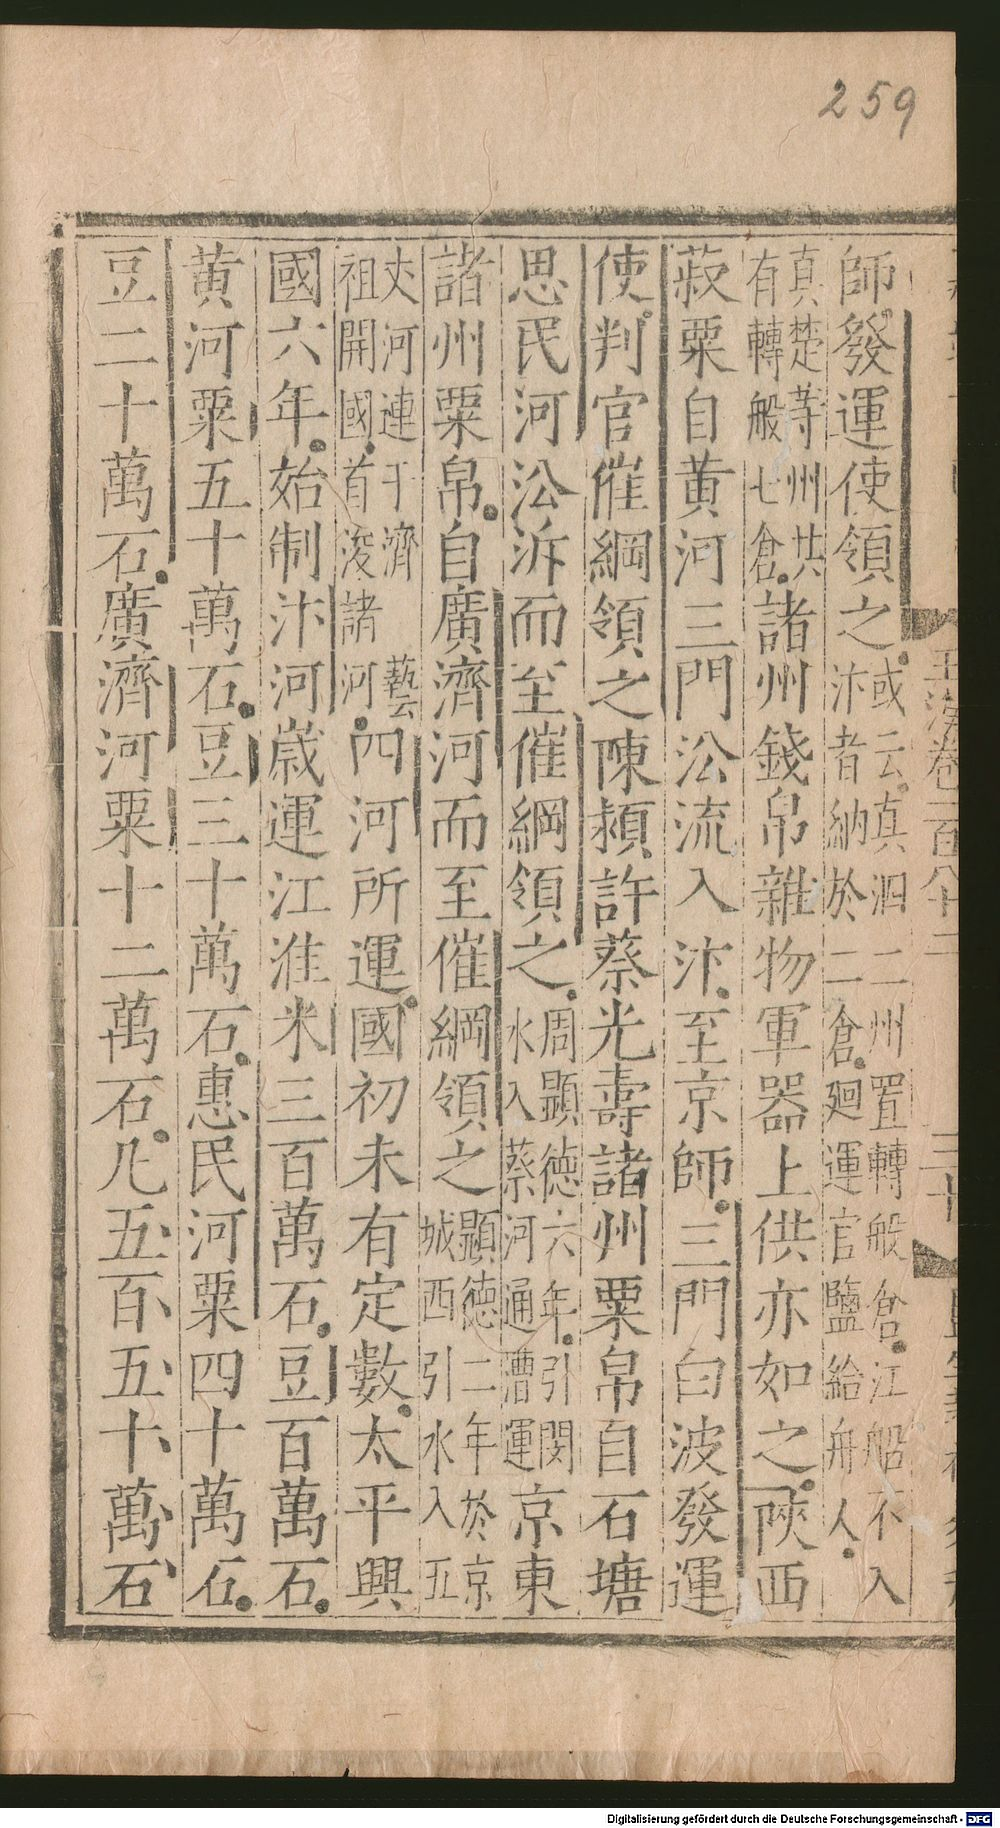 259
玉海卷一百八十二
三十
師發運使領之或云真泗二州置轉般倉江船不入汴者納於二倉廻運官鹽給舟人
真楚䓁州共有轉般七倉諸州錢帛雜物軍器上供亦如之陝西
菽粟自黄河三門㳂流入汴至京師三門白波發運
使判官催綱領之陳潁許蔡光壽諸州粟帛自石塘
惠民河㳂泝而至催綱領之周顯徳六年引閔水入蔡河通漕運京東
諸州粟帛自廣濟河而至催綱領之顯徳二年於京城西引水入五
丈河連于濟藝祖開國首浚諸河四河所運國初未有定數太平興
國六年始制汴河歳運江淮米三百萬石豆百萬石
黄河粟五十萬石豆三十萬石惠民河粟四十萬石
豆二十萬石廣濟河粟十二萬石凡五百五十萬石
Digitalisierung gefördert durch die Deutsche Forschungsgemeinschaft - DFG